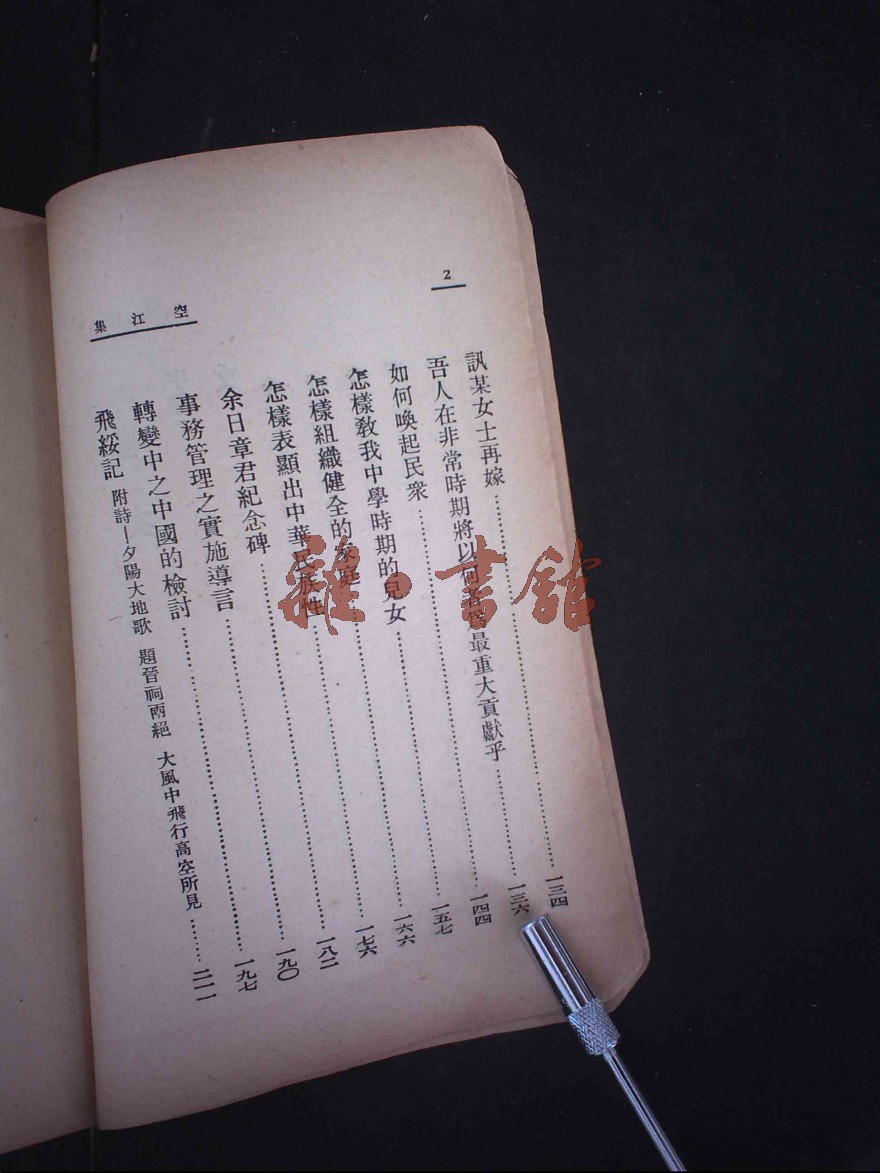 2
空江集
訊某女士再嫁……一三四
吾人在非常時期將以何者爲最重大貢獻乎……一三六
如何喚起民衆……一四四
怎樣教我中學時期的兒女……一五七
怎樣組織健全的家庭……一六六
怎樣表顯出中華民族性……一七六
余日章君紀念碑……一八二
事務管理之實施導言……一九〇
轉變中之中國的檢討……一九七
飛綏記 附詩—夕陽大地歌 題晉祠兩絕 大風中飛行高空所見……二一一
雜·書館